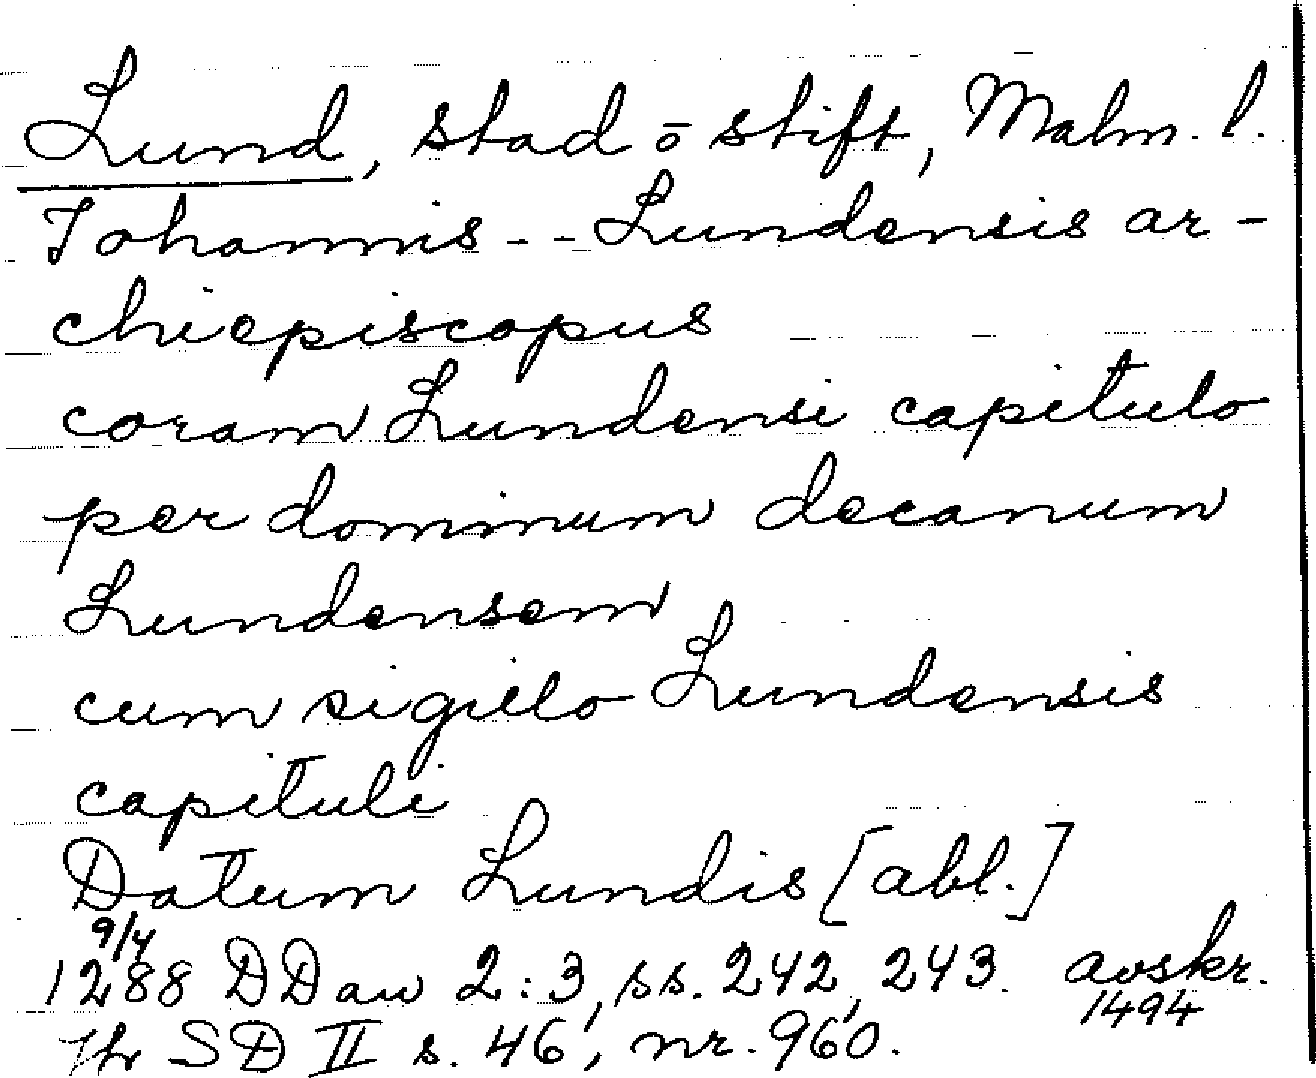 Lund, stad o stift, Malm. l.
Johannis - - Lundensis ar-
chiepiscopus
coram Lundensi capitulo
per dominum decanum
Lundensem
cum sigillo Lundensis
capituli
Datum Lundis [abl.]
9/4
1288 DDan 2:3, ss. 242, 243. avskr.
1494
Jfr SD II s. 46, nr. 960.